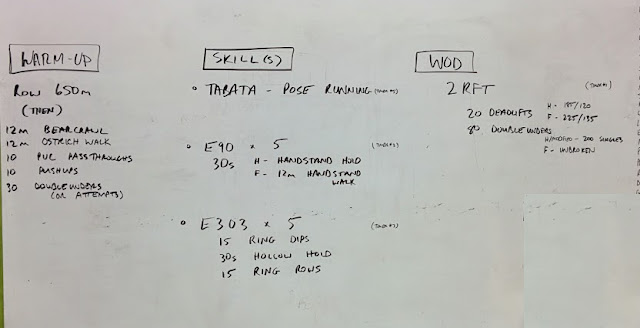 WARM-UP
ROW 650m
(THEN)
12m BEARCRAWL
12m OSTRICH WALK
10 PVC PASSTHROUGHS
10 PUSHUPS
30 DOUBLEUNDERS
(OR ATTEMPTS)
SKILL(S)
TABATA - POSE RUNNING
E90 x 5
30s H - HANDSTAND HOLD
F - 12m HANDSTAND
WALK
E303 x 5
15 RING DIPS
30s HOLLOW HOLD
15 RING ROWS
WOD
2 RFT
20 DEADLIFTS H - 185/120
F - 225/155
80 DOUBLEUNDERS
200 SINGLES
F - UNBROKEN